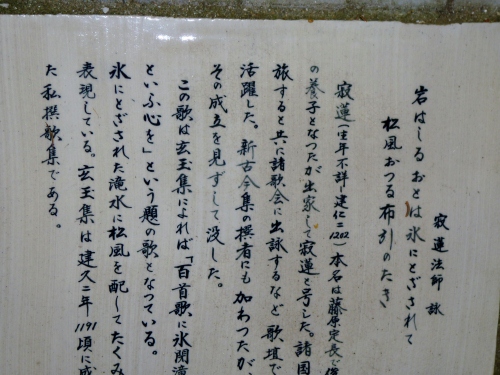 寂蓮法師 詠
岩はしる おとは 氷にとざされて
松風おつる 布引のたき
寂蓮(生年不詳‐建仁二1202)本名は藤原定長で俊
の養子となつたが出家して寂蓮と号した。諸国
旅すると共に諸歌会に出詠するなど歌壇で
活躍した。新古今集の撰者にも加わつたが、
その成立を見ずして没した。
この歌は玄玉集によれば「百首歌に氷閉滝
といふ心を」という題の歌となつている。
氷にとざされた滝水に松風を配してたくみ
表現している。玄玉集は建久二年1191頃に成
た私撰歌集である。